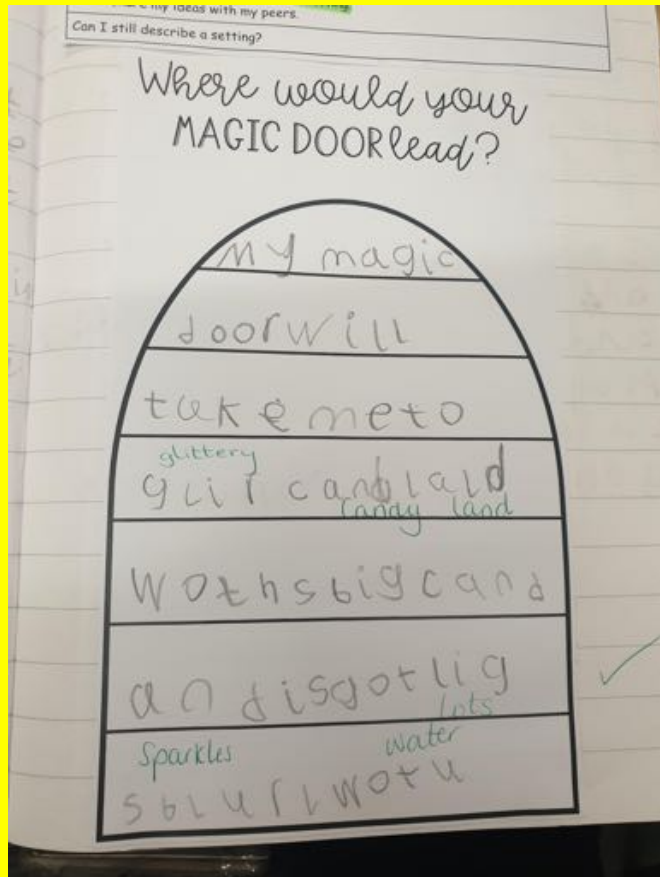 my ideas with my peers.
Can I still describe a setting?
Where would your
MAGIC DOOR lead?
My magic
door will
take me to
glittery
glit candlald
candy land
wothsbigcand
andisgotlig
lots
Sparkles water